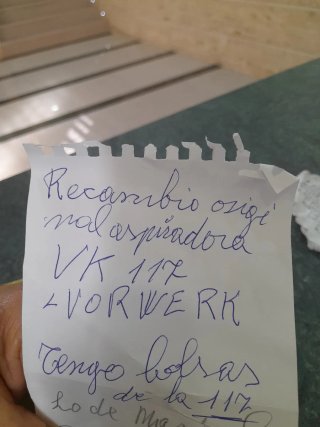 Recambio origi
nal aspiradora
VK 117
-VORWERK
Tengo bolsas
de la 117
Lo de